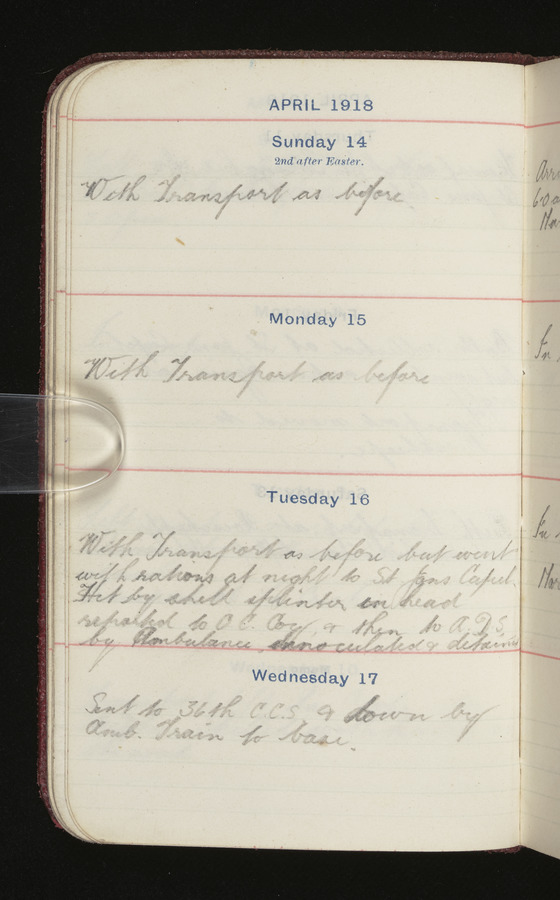 APRIL 1918
Sunday 14
2nd after Easter.
With Transport as before
Monday 15
With Transport as before
Tuesday 16
With Transport as before but went
with rations at night to St Jans Capel.
Hit by shell splinter on head
reported to O.C. Coy, & then to A.D.S.
by Ambulance, innoculated & detained
Wednesday 17
Sent to 36th C.C.S. & down by
Amb. Train to base.